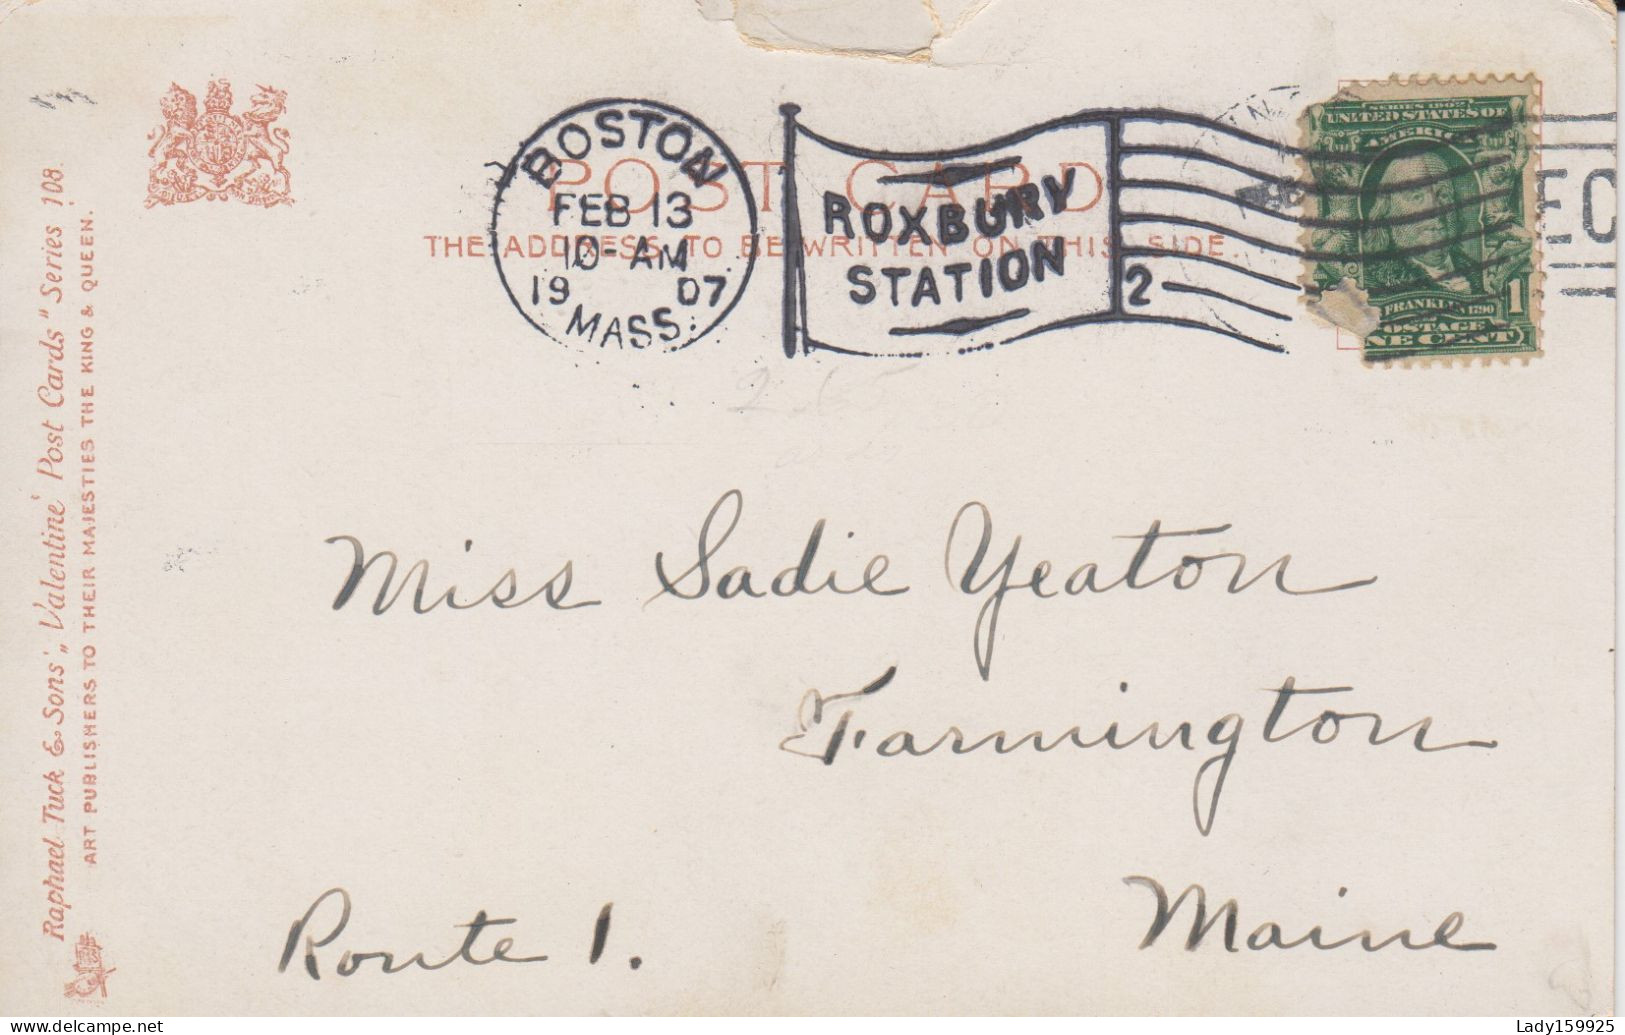 POST CARD
THE ADDRESS TO BE WRITTEN ON THIS SIDE.
BOSTON
FEB 13
10-AM
19 07
MASS.
ROXBURY
STATION
2
SERIES 1902
UNITED STATES OF
AMERICA
FRANKLIN 1790
POSTAGE
NE CENT
1
EC
Raphael Tuck & Sons' „Valentine' Post Cards" Series 108
ART PUBLISHERS TO THEIR MAJESTIES THE KING & QUEEN.
Miss Sadie Yeaton
Farmington
Maine
Route 1.
Lady159925